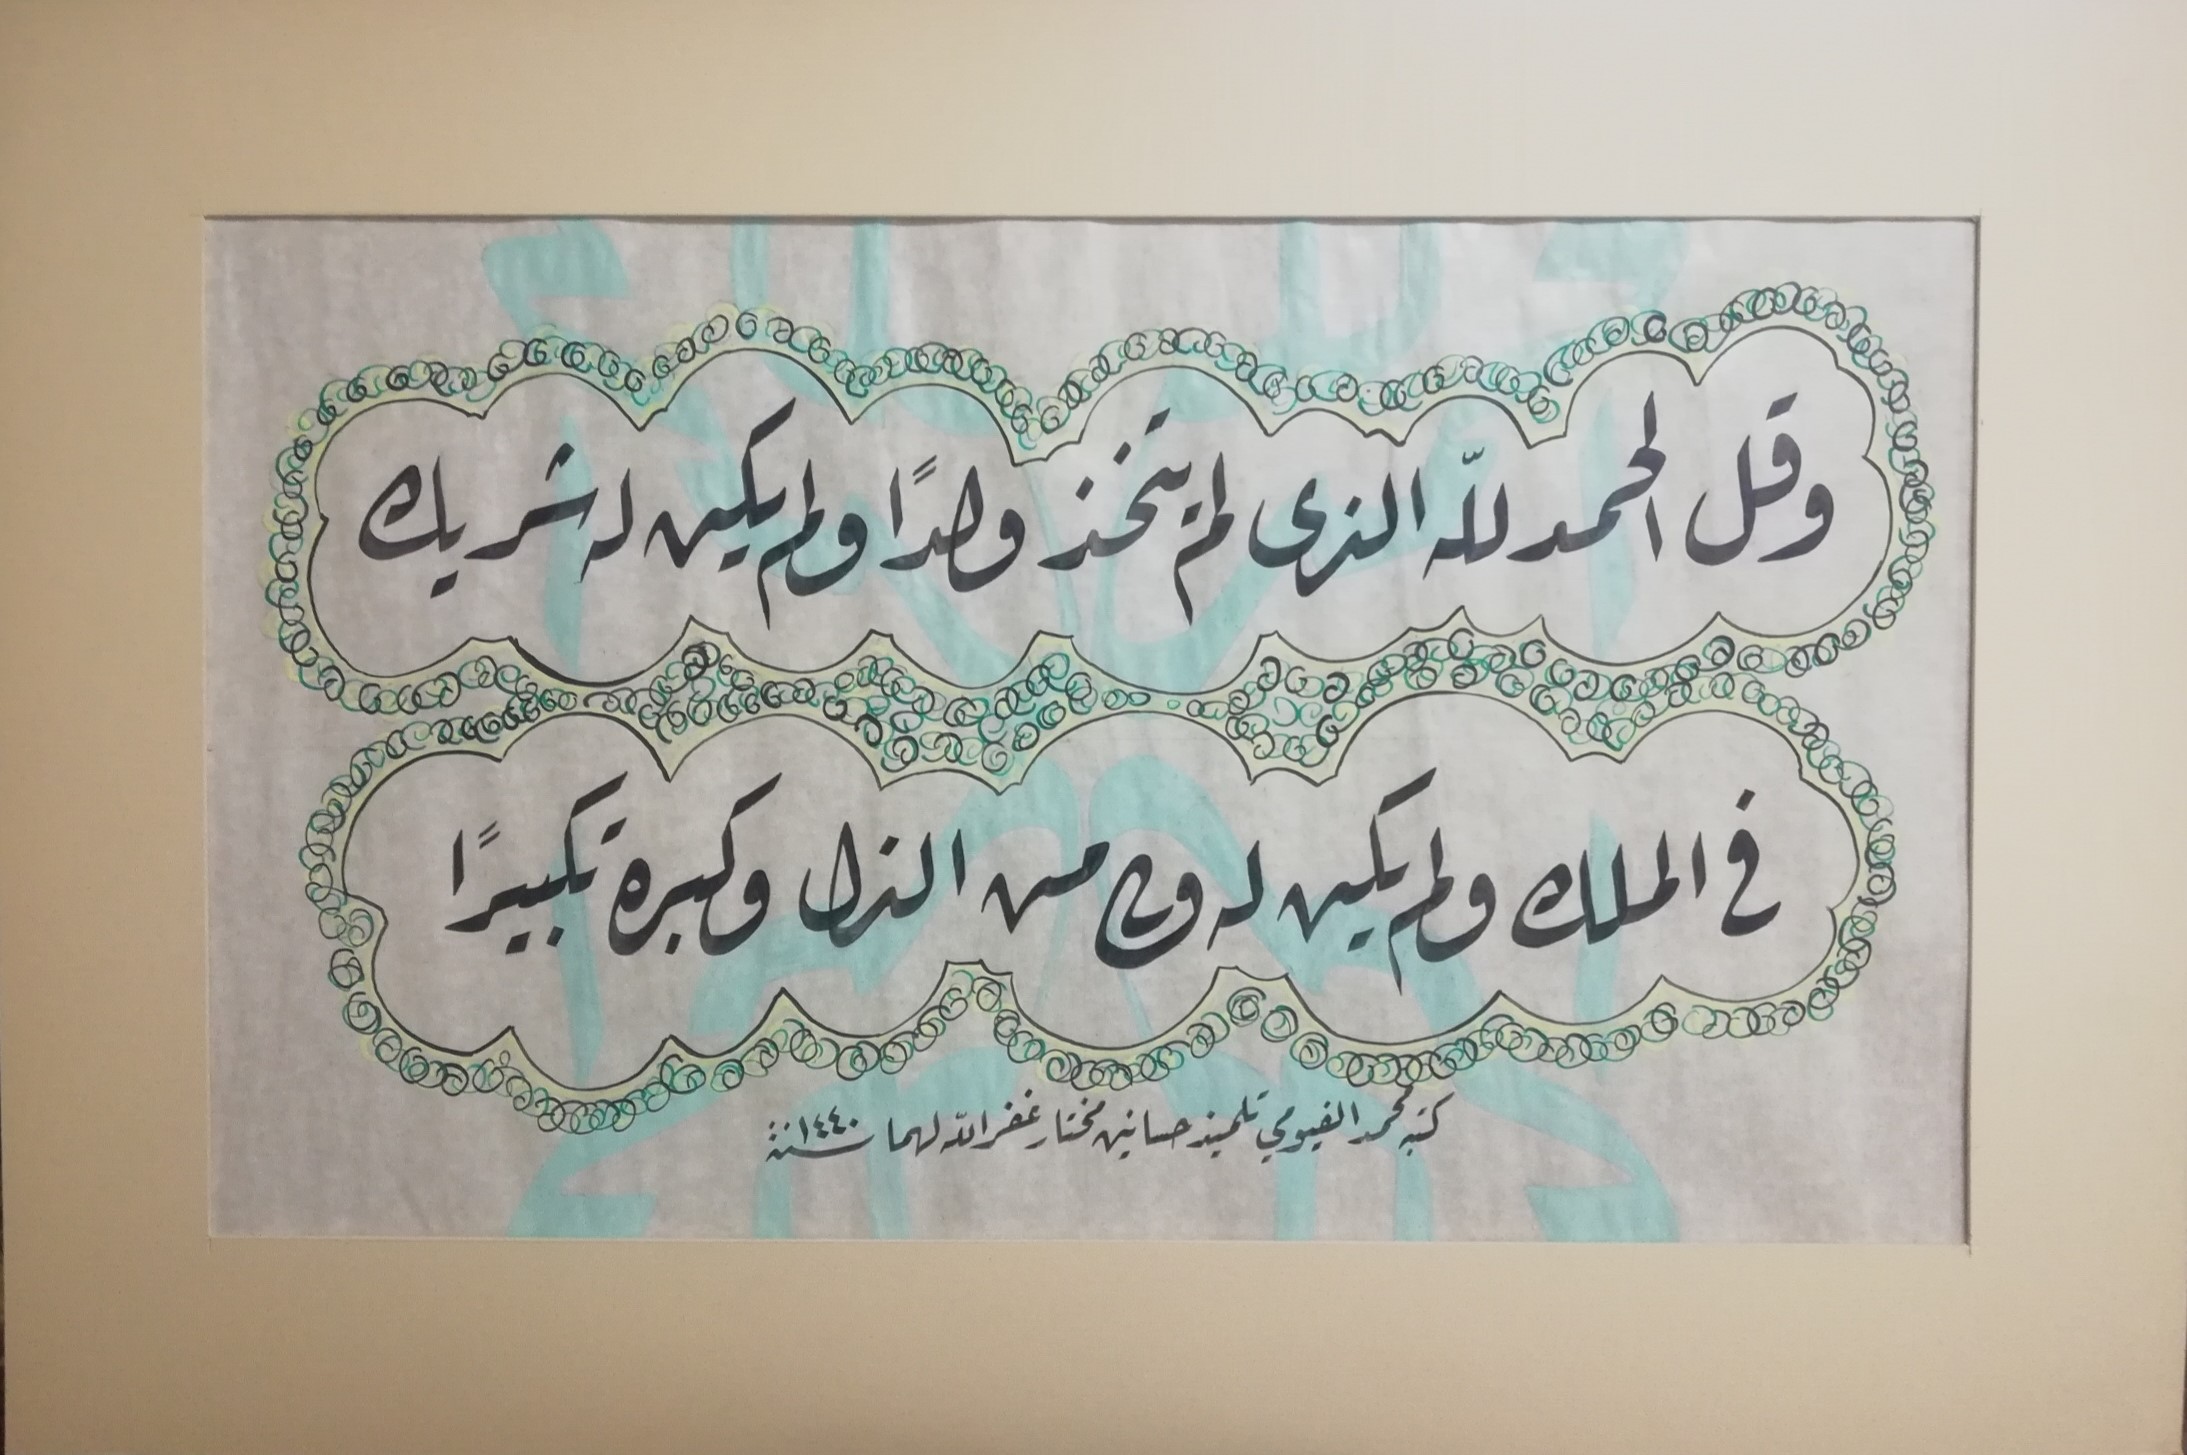 وقل الحمد للّه الذى لم يتخذ ولدًا ولم يكن له شريك
فى الملك ولم يكن له ولى من الذل وكبره تكبيرًا
كتبه محمد الفيومي تلميذ حسانين مختار غفر اللّه لهما سنة ١٤٤٠